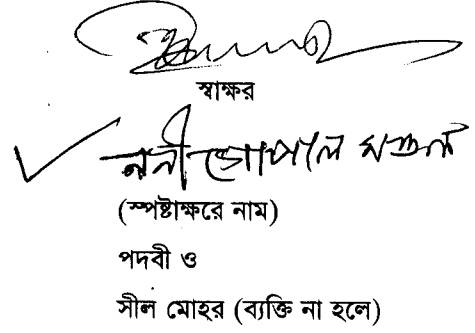 স্বাক্ষর
ননী গোপাল মণ্ডল
(স্পষ্টাক্ষরে নাম)
পদবী ও
সীল মোহর (ব্যক্তি না হলে)